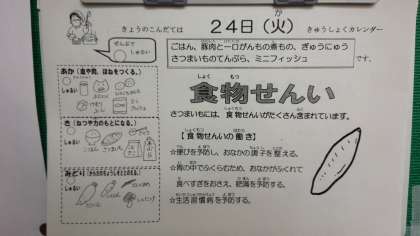 きょうのこんだては
24日(火)
きゅうしょくカレンダー
ぜんぶで
しゅるい
ごはん、豚肉と一口がんもの煮もの、ぎゅうにゅう
さつまいものてんぷら、ミニフィッシュ
です。
しょく もつ
食物せんい
さつまいもには、食物せんいがたくさん含まれています。
【食物せんいの働き】
☆便ぴを予防し、おなかの調子を整える。
☆胃の中でふくらむため、おなかがふくれて
食べすぎをおさえ、肥満を予防する。
☆生活習慣病を予防する。
しゅるい
き(ねつや力のもとになる。)
しゅるい
ごはん
さつまいも
しゅるい